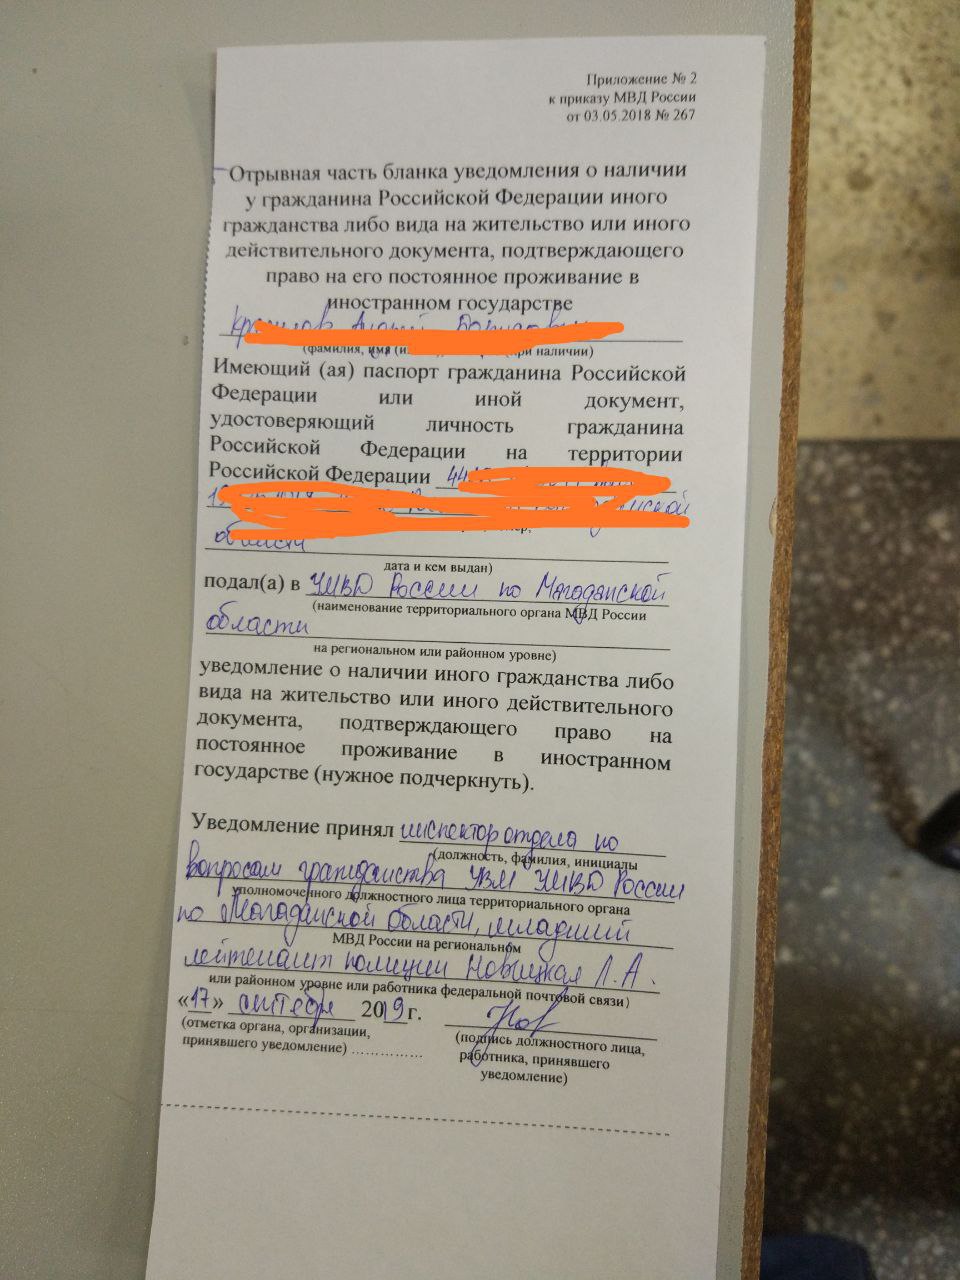 Приложение № 2
к приказу МВД России
от 03.05.2018 № 267
Отрывная часть бланка уведомления о наличии
у гражданина Российской Федерации иного
гражданства либо вида на жительство или иного
действительного документа, подтверждающего
право на его постоянное проживание в
иностранном государстве
(фамилия, имя при наличии)
Имеющий (ая) паспорт гражданина Российской
Федерации или иной документ,
удостоверяющий личность гражданина
Российской Федерации на территории
Российской Федерации
области
дата и кем выдан)
подал(а) в УМВД России по Магаданской
(наименование территориального органа МВД России
области
на региональном или районном уровне)
уведомление о наличии иного гражданства либо
вида на жительство или иного действительного
документа, подтверждающего право на
постоянное проживание в иностранном
государстве (нужное подчеркнуть).
Уведомление принял инспектор отдела по
(должность, фамилия, инициалы
вопросам гражданства УВМ УМВД России
уполномоченного должностного лица территориального органа
по Магаданской области, младший
МВД России на региональном
лейтенант полиции Новицкая Л.А.
или районном уровне или работника федеральной почтовой связи)
«17» сентября 2019г.
(отметка органа, организации, принявшего уведомление) ……………
(подпись должностного лица, работника, принявшего уведомление)